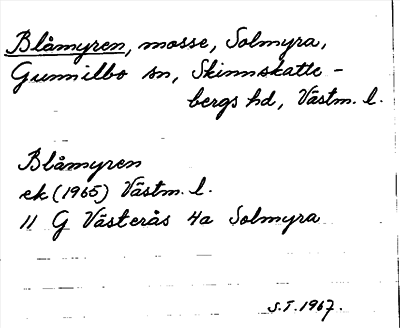 Blåmyren, mosse, Solmyra,
Gunnilbo sn, Skinnskatte-
bergs hd, Västm. l.
Blåmyren
ek (1965) Västm. l.
11 G Västerås 4a Solmyra
S.T. 1967.